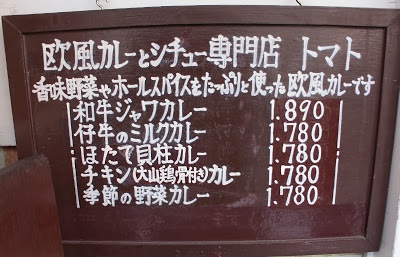 欧風カレーとシチュー専門店 トマト
香味野菜やホールスパイスをたっぷりと使った欧風カレーです
和牛ジャワカレー 1.890
仔牛のミルクカレー 1.780
ほたて貝柱カレー 1.780
チキン(大山鶏骨付き)カレー 1.780
季節の野菜カレー 1.780